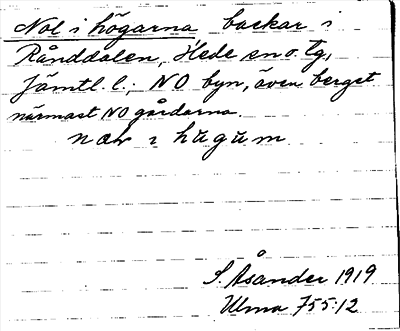 Nol i högarna backar i
Rånddalen, Hede sn o. tg,
Jämtl. l.; NO byn, även berget
närmast NO gårdarna.
nar i hugum
S. Åsander 1919
Ulma 755:12